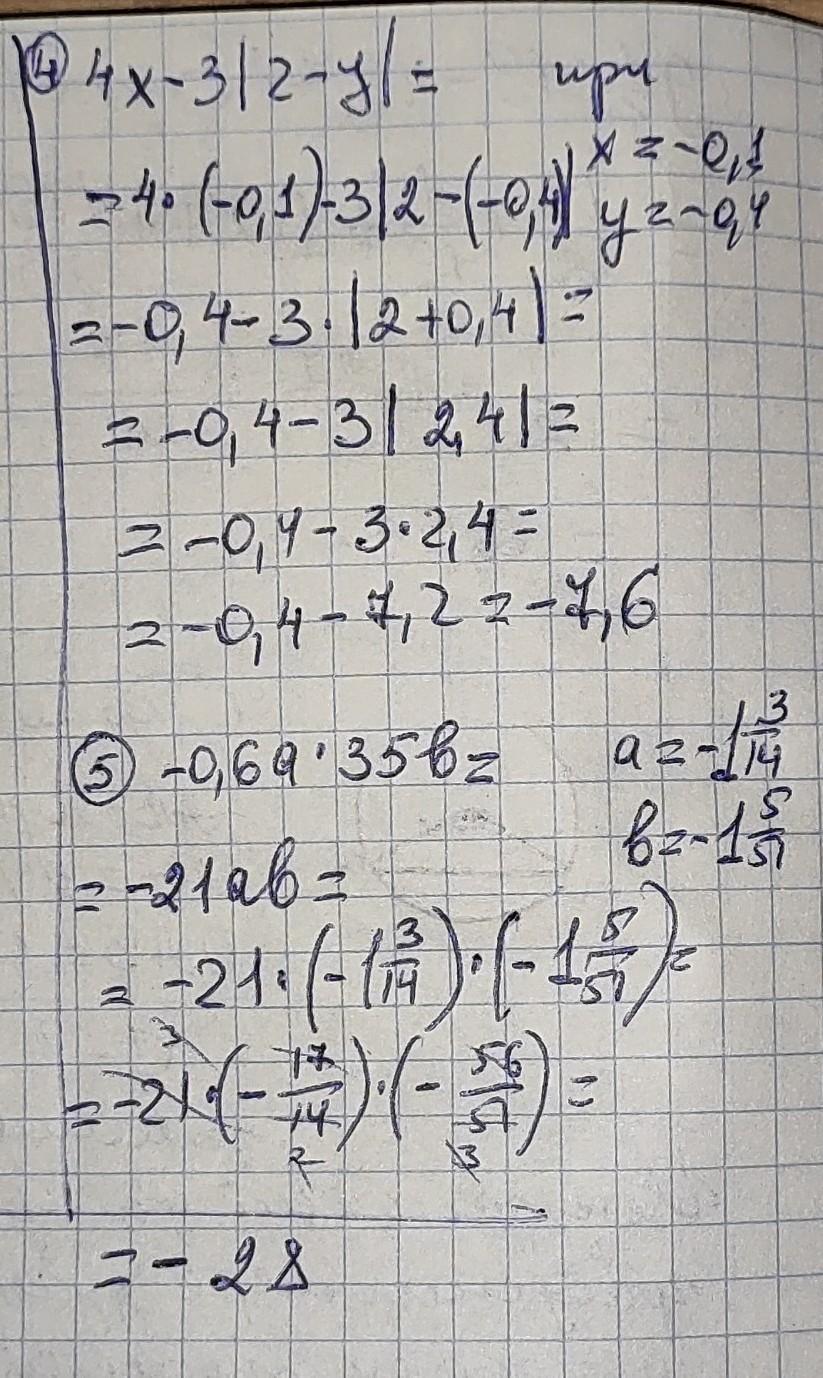 ④ 4x - 3|2 - y| = при
x = -0,1
= 4·(-0,1) - 3|2 - (-0,4| y = -0,4
= -0,4 - 3·|2 + 0,4| =
= -0,4 - 3| 2,4| =
= -0,4 - 3·2,4 =
= -0,4 - 7,2 = -7,6
⑤ -0,6a·35b = a = -1 3/14
b = -1 5/51
= -21ab =
= -21·(-1 3/14)·(-1 5/51) =
3
= -21·(-17/14)·(-56/51) =
2 3
= - 28